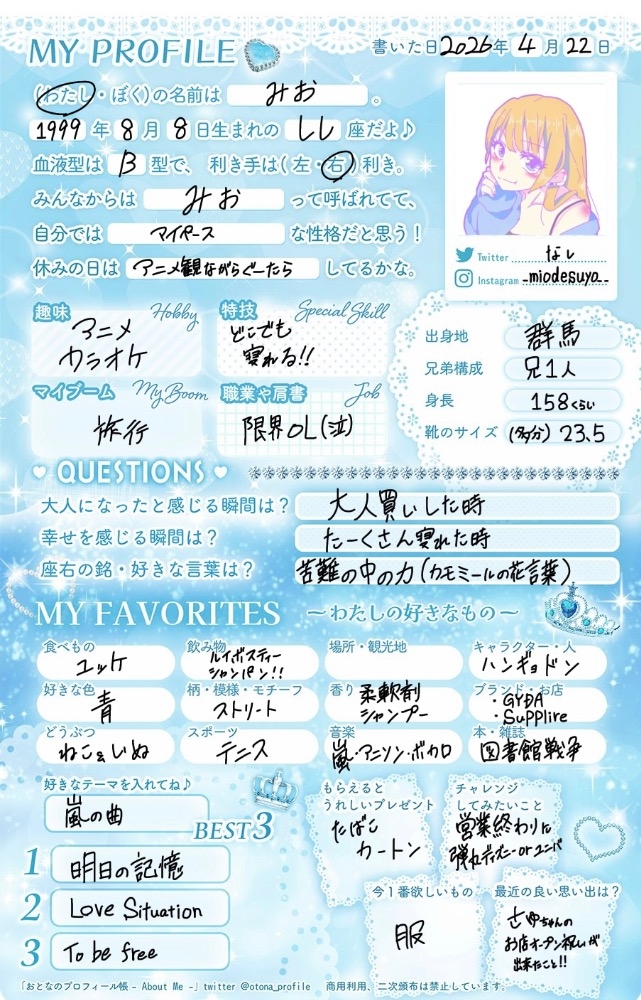 MY PROFILE
書いた日2026年 4月 22日
(わたし・ぼく)の名前は みお 。
1999年 8月 8日生まれの しし 座だよ♪
血液型は B 型で、利き手は(左・右)利き。
みんなからは みお って呼ばれてて、
自分では マイペース な性格だと思う!
休みの日は アニメ観ながらぐーたら してるかな。
Twitter なし
Instagram miodesuyo
趣味 Hobby
アニメ
カラオケ
特技 Special Skill
どこでも
寝れる!!
マイブーム My Boom
旅行
職業や肩書 Job
限界OL(泣)
出身地 群馬
兄弟構成 兄1人
身長 158くらい
靴のサイズ (多分) 23.5
QUESTIONS
大人になったと感じる瞬間は? 大人買いした時
幸せを感じる瞬間は? たーくさん寝れた時
座右の銘・好きな言葉は? 苦難の中の力(カモミールの花言葉)
MY FAVORITES ~わたしの好きなもの~
食べもの
ユッケ
飲み物
ルイボスティー
シャンパン!!
場所・観光地
キャラクター・人
ハンギョドン
好きな色
青
柄・模様・モチーフ
ストリート
香り
柔軟剤
シャンプー
ブランド・お店
・GYDA
・Supplire
どうぶつ
ねこ&いぬ
スポーツ
テニス
音楽
嵐・アニソン・ボカロ
本・雑誌
図書館戦争
好きなテーマを入れてね♪
嵐の曲
BEST3
1 明日の記憶
2 Love Situation
3 To be free
もらえると
うれしいプレゼント
たばこ
カートン
チャレンジ
してみたいこと
営業終わりに
弾丸ディズニーorユニバ
今1番欲しいもの
服
最近の良い思い出は?
さゆちゃんの
お店オープン祝いが
出来たこと!!
「おとなのプロフィール帳 - About Me -」twitter @otona_profile 商用利用、二次頒布は禁止しています。